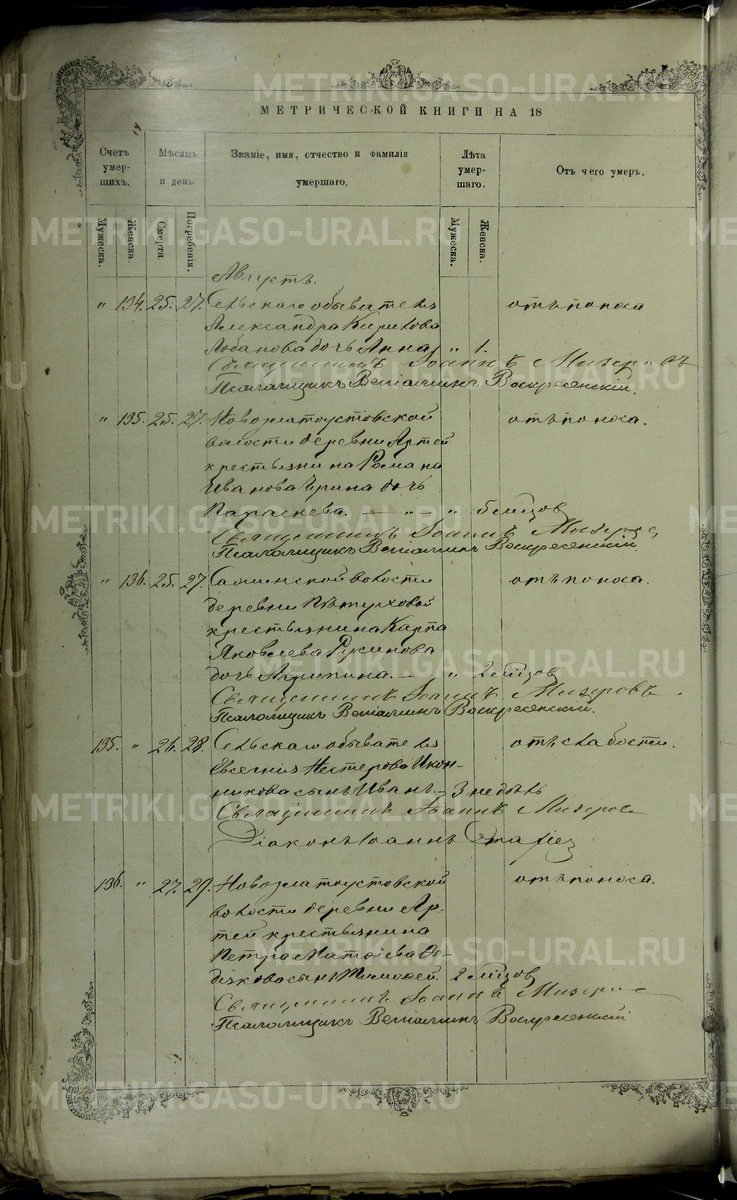 МЕТРИЧЕСКОЙ КНИГИ НА 18
Счетъ умершихъ. Мѣсяцъ и день Званіе, имя, отчество и фамилія умершаго. Лѣта умершаго. Отъ чего умеръ.
Мужеска. Женска. Смерти. Погребенія. Мужеска. Женска.
Августъ.
" 134. 25. 27. Сельскаго обывателя отъ поноса
Александра Кирикова
Лобанова дочь Анна " 1.
Священникъ Іоаннъ Мизеровъ
Псаломщикъ Веніаминъ Воскресенскій.
" 135. 25. 27. Новозлатоустовской отъ поноса.
волости деревни Артей
крестьянина Романа
Иванова дочь
Параскева. — " " 5 мѣсцов
Священникъ Іоаннъ Мизеров
Псаломщикъ Веніаминъ Воскресенскій
" 136. 25. 27. волости отъ поноса.
деревни Пѣтуховой
крестьянина Карпа
Яковлева
дочь Агрипина. — " 2 мѣсцов
Священникъ Іоаннъ Мизеровъ
Псаломщикъ Веніаминъ Воскресенскій.
135. " 26. 28. Сельскаго обывателя отъ слабости.
Евгенія Нестерова Икон-
никова сынъ Иванъ. — 3 недѣль
Священникъ Іоаннъ Мизеров
Діаконъ Іоаннъ
136. " 27. 29. Новозлатоустовской отъ поноса.
волости деревни Ар-
тей крестьянина
Петра
сынъ Тимофей. 2 мѣсцов
Священникъ Іоаннъ Мизеров
Псаломщикъ Веніаминъ Воскресенскій
METRIKI.GASO-URAL.RU